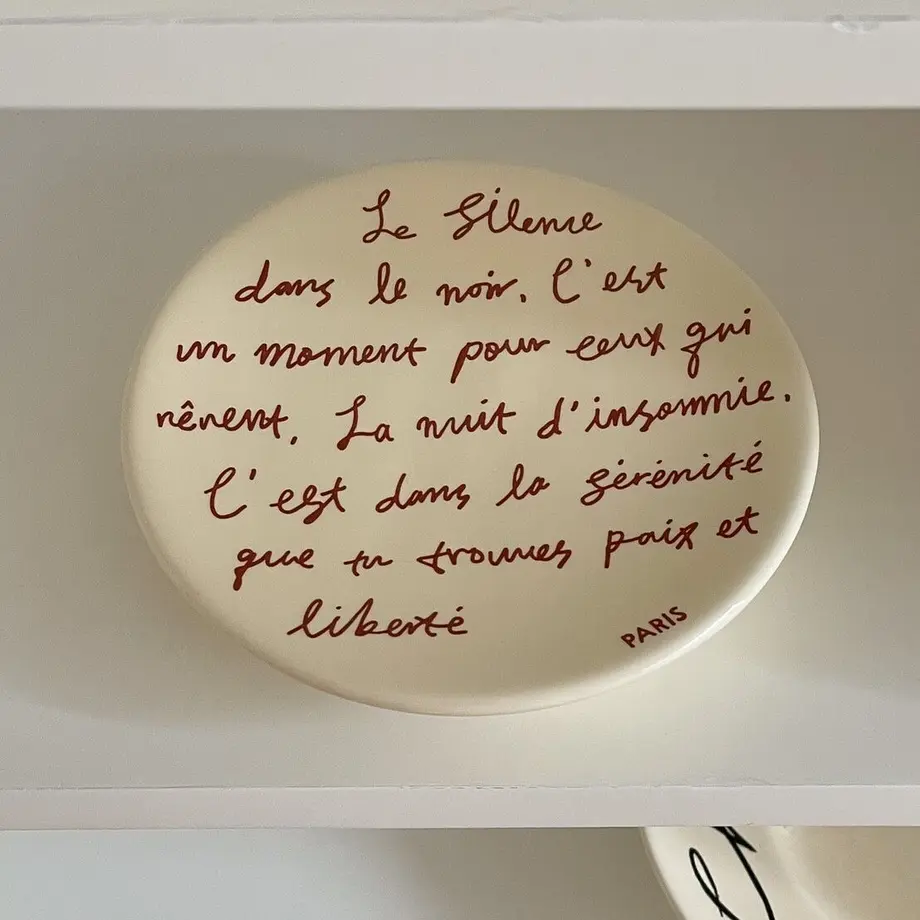 Le Silence
dans le noir. C'est
un moment pour ceux qui
rêvent. La nuit d'insomnie.
C'est dans la sérénité
que tu trouves paix et
liberté
PARIS